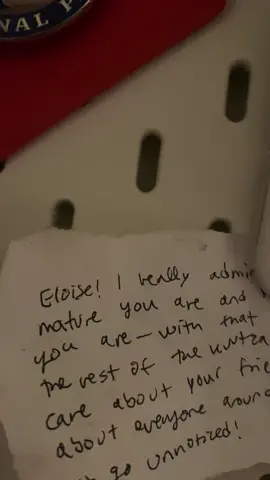 VAL P
Eloise! I really admir
mature you are and
you are — with that
the rest of the
care about your frie
about everyone aroun
go unnotized!